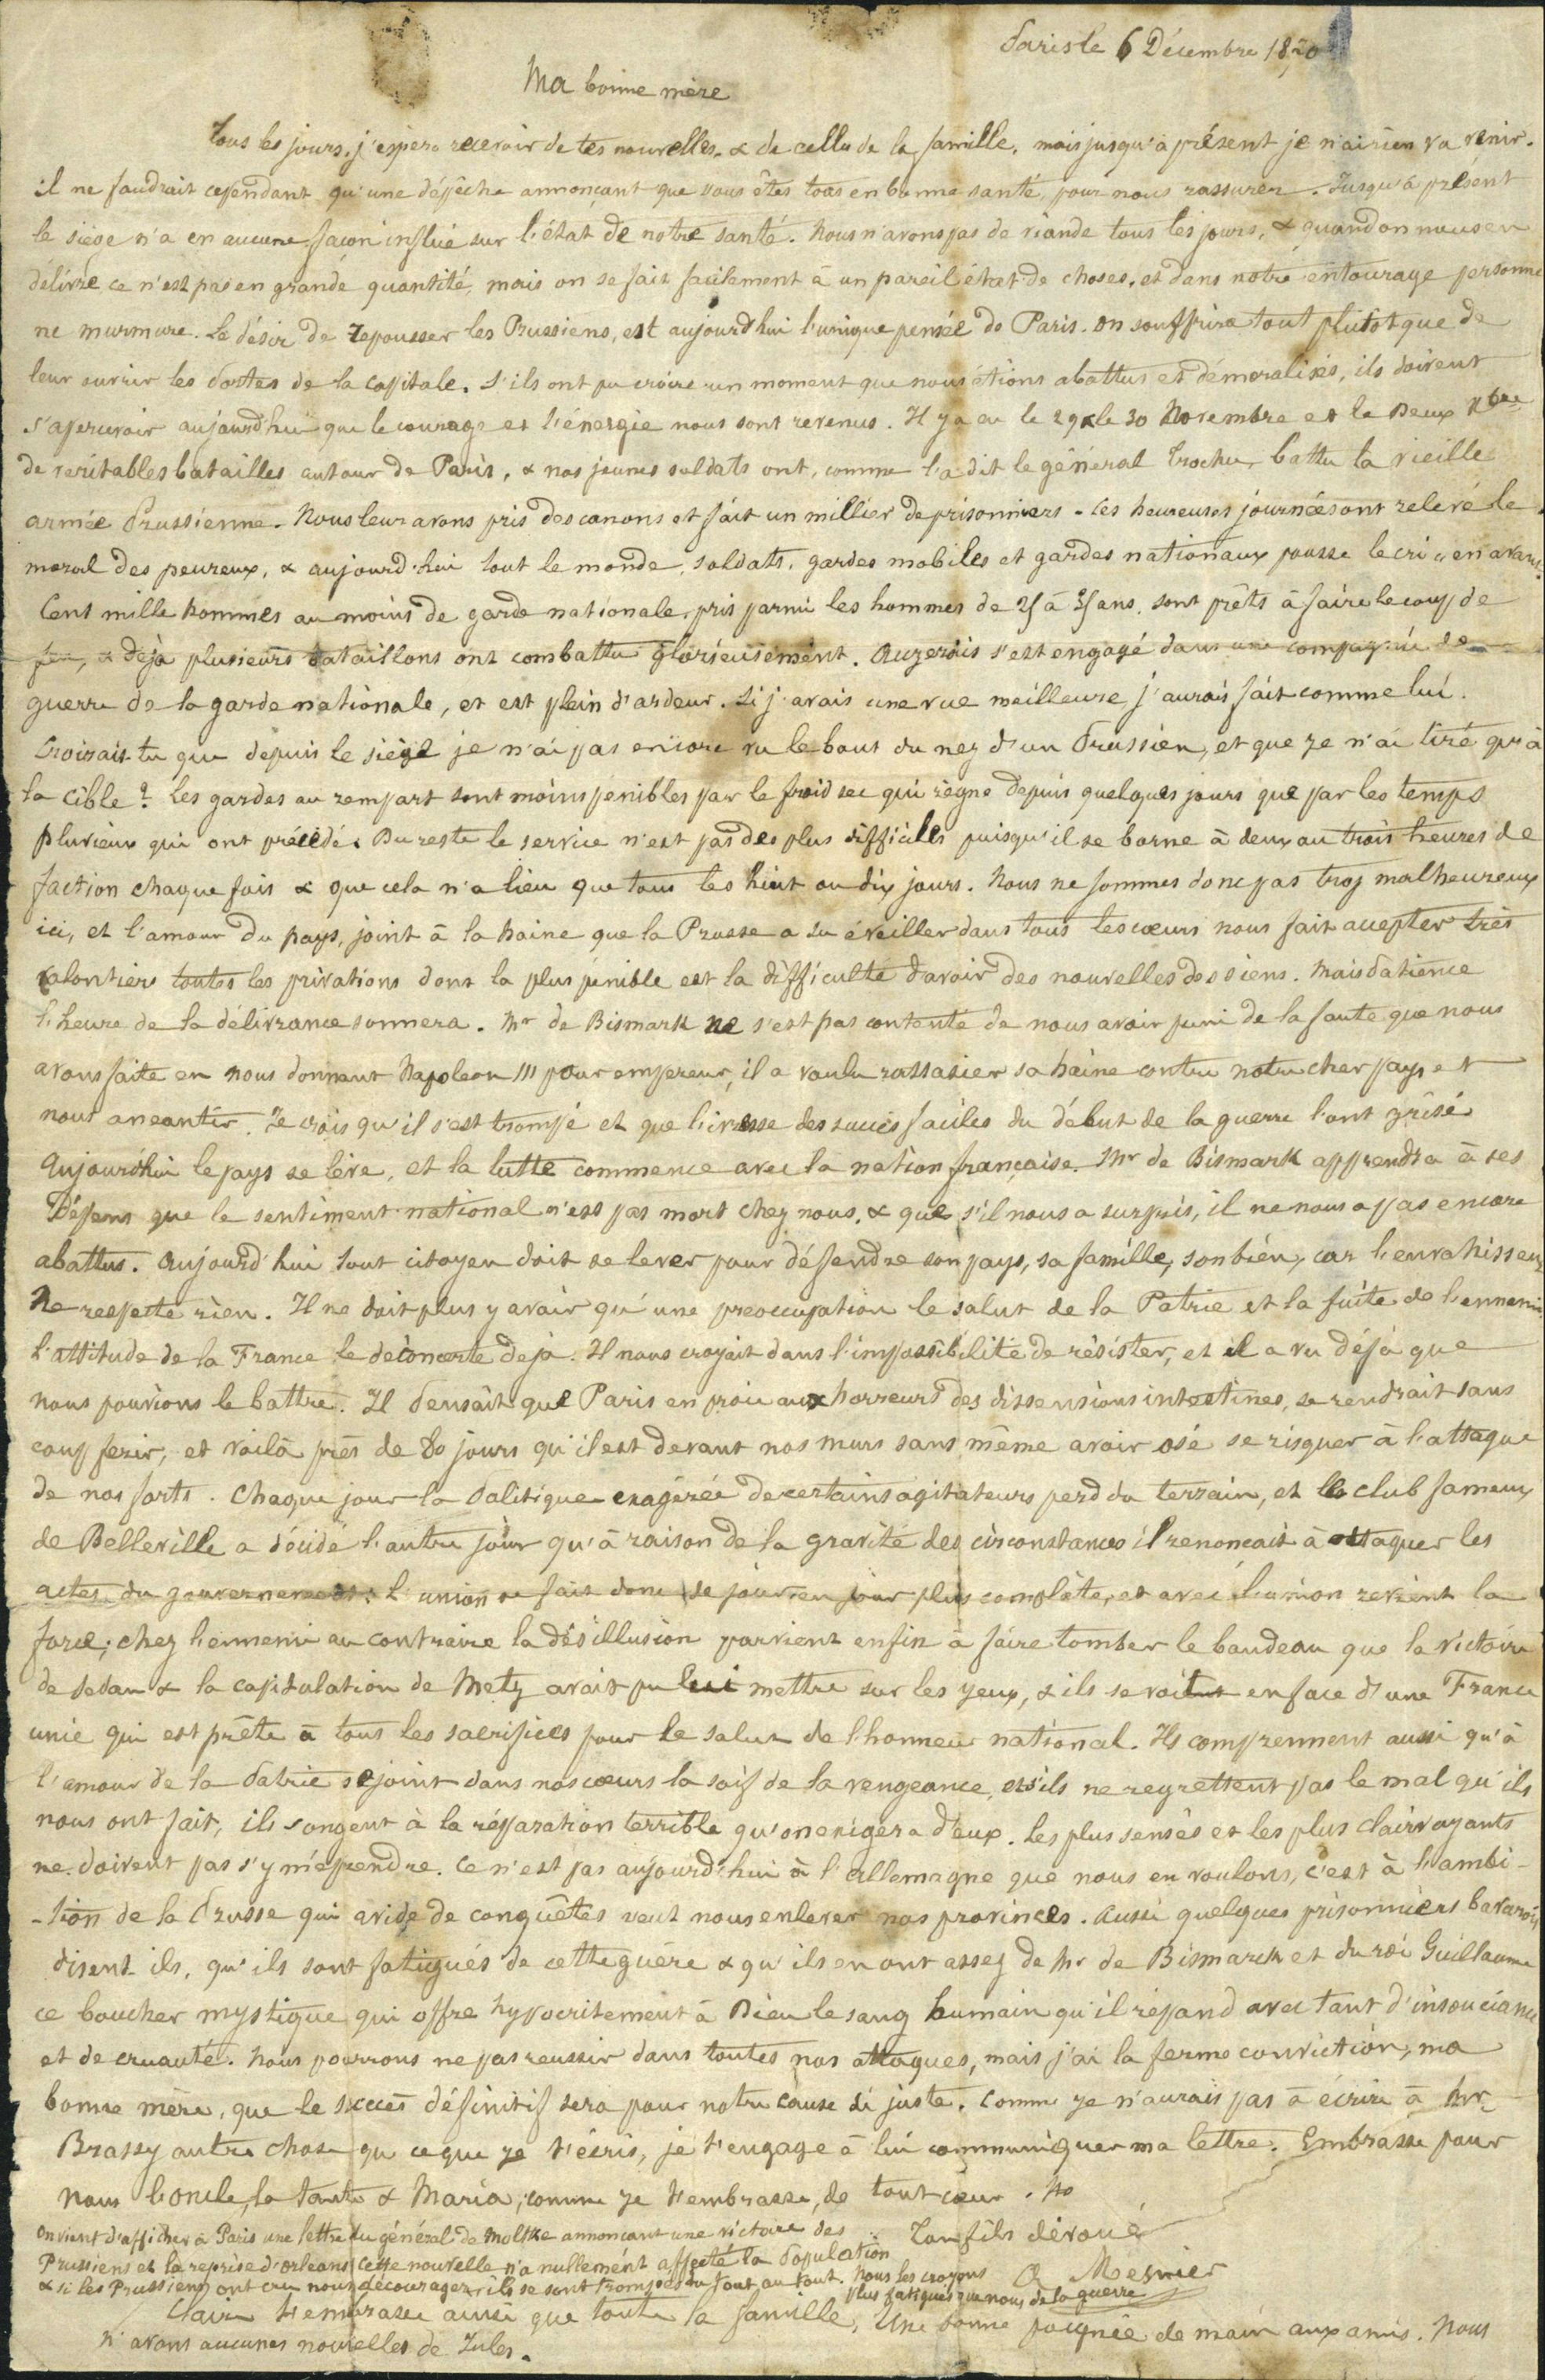 Paris le 6 Décembre 1870
Ma bonne mère
Tous les jours, j'espère recevoir de tes nouvelles, & de celles de la famille, mais jusqu'à présent je n'ai rien vu venir.
il ne faudrait cependant qu'une dépêche annonçant que vous êtes tous en bonne santé, pour nous rassurer. Jusqu'à présent
le siège n'a en aucune façon influé sur l'état de notre santé. Nous n'avons pas de viande tous les jours, & quand on nous en
délivre ce n'est pas en grande quantité, mais on se fait facilement à un pareil état de choses, et dans notre entourage personne
ne murmure. Le désir de repousser les Prussiens, est aujourd'hui l'unique pensée de Paris. On souffrira tout plutôt que de
leur ouvrir les Portes de la Capitale. S'ils ont pu croire un moment que nous étions abattus et démoralisés, ils doivent
s'apercevoir aujourd'hui que le courage et l'énergie nous sont revenus. Il y a eu le 29 & le 30 Novembre et le Deux Xbre
de véritables batailles autour de Paris, & nos jeunes soldats ont, comme l'a dit le général Trochu, battu la vieille
armée Prussienne. Nous leur avons pris des canons et fait un millier de prisonniers - Ces heureuses journées ont relevé le
moral des peureux, & aujourd'hui tout le monde, soldats, gardes mobiles et gardes nationaux pousse le cri « en avant.
Cent mille hommes au moins de garde nationale, pris parmi les hommes de 25 à 35 ans, sont prêts à faire le coup de
feu, & déjà plusieurs bataillons ont combattu glorieusement. Auzerais s'est engagé dans une compagnie de
guerre de la garde nationale, et est plein d'ardeur. Si j'avais une vue meilleure, j'aurais fait comme lui.
Croirais-tu que depuis le siège je n'ai pas encore vu le bout du nez d'un Prussien, et que je n'ai tiré qu'à
la cible? Les gardes au rempart sont moins pénibles par le froid sec qui règne depuis quelques jours que par les temps
pluvieux qui ont précédé. Du reste le service n'est pas des plus difficiles puisqu'il se borne à deux ou trois heures de
faction chaque fois & que cela n'a lieu que tous les huit ou dix jours. Nous ne sommes donc pas trop malheureux
ici, et l'amour du pays, joint à la haine que la Prusse a su éveiller dans tous les cœurs nous fait accepter très
volontiers toutes les privations dont la plus pénible est la difficulté d'avoir des nouvelles des siens. Mais Patience
l'heure de la délivrance sonnera. Mr de Bismark ne s'est pas contenté de nous avoir puni de la faute que nous
avons faite en nous donnant Napoleon III pour empereur, il a voulu rassasier sa haine contre notre cher pays et
nous anéantir. Je crois qu'il s'est trompé et que l'ivresse des succès faciles du début de la guerre l'ont grisé
Aujourd'hui le pays se lève, et la lutte commence avec la nation française. Mr de Bismark apprendra à ses
Dépens que le sentiment national n'est pas mort chez nous, & que s'il nous a surpris, il ne nous a pas encore
abattus. Aujourd'hui tout citoyen doit se lever pour défendre son pays, sa famille, son bien, car l'envahisseur
Ne respecte rien. Il ne doit plus y avoir qu'une préoccupation le salut de la Patrie et la fuite de l'ennemi.
L'attitude de la France le déconcerte déjà. Il nous croyait dans l'impossibilité de résister, et il a vu déjà que
nous pouvions le battre. Il Pensait que Paris en proie aux horreurs des dissensions intestines, se rendrait sans
coup férir, et voilà près de 80 jours qu'il est devant nos murs sans même avoir osé se risquer à l'attaque
de nos forts. Chaque jour la Politique exagérée de certains agitateurs perd du terrain, et le club fameux
de Belleville a décidé l'autre jour qu'à raison de la gravité des circonstances il renoncait à attaquer les
actes du gouvernement. L'union se fait donc de jour en jour plus complète, et avec l'union revient la
force; chez l'ennemi au contraire la désillusion parvient enfin à faire tomber le bandeau que la Victoire
de Sedan & la capitulation de Metz avait pu lui mettre sur les yeux, & ils se voient en face d'une France
unie qui est prête à tous les sacrifices pour le salut de l'honneur national. Ils comprennent aussi qu'à
l'amour de la Patrie se joint dans nos cœurs la soif de la vengeance, et s'ils ne regrettent pas le mal qu'ils
nous ont fait, ils songent à la réparation terrible qu'on exigera d'eux. Les plus sensés et les plus clairvoyants
ne doivent pas s'y méprendre. Ce n'est pas aujourd'hui à l'Allemagne que nous en voulons, c'est à l'ambi-
-tion de la Prusse qui avide de conquêtes veut nous enlever nos provinces. Aussi quelques prisonniers bavarois
disent-ils, qu'ils sont fatigués de cette guère & qu'ils en ont assez de Mr de Bismarck et du roi Guillaume
ce boucher mystique qui offre hypocritement à Dieu le sang humain qu'il répand avec tant d'insouciance
et de cruauté. Nous pourrons ne pas reussir dans toutes nos attaques, mais j'ai la ferme conviction, ma
bonne mère, que le succès définitif sera pour notre cause si juste. Comme je n'aurais pas à écrire à Mr
Brassy autre chose que ce que je t'écris, je t'engage à lui communiquer ma lettre. Embrasse pour
nous l'oncle, la tante & Maria, comme je t'embrasse, de tout cœur.
Ton fils dévoué
On vient d'afficher à Paris une lettre du général de Moltke annoncant une victoire des
Prussiens et la reprise d'Orleans, cette nouvelle n'a nullement affecté la Population
& si les Prussiens ont cru nous décourager, ils se sont trompés du tout au tout. Nous les croyons
plus fatigués que nous de la guerre
A Mesnier
Claire t'embrasse ainsi que toute la famille, Une bonne poignée de main aux amis. Nous
n'avons aucunes nouvelles de Jules.